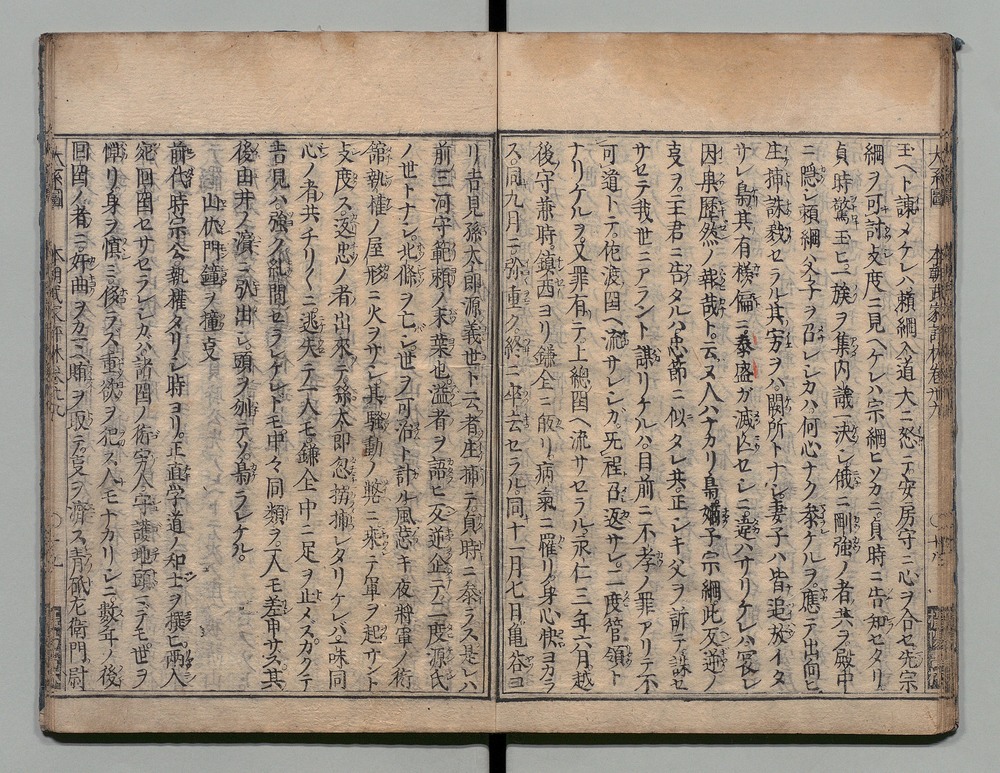 玉ヘト諫メケレハ頼綱入道大ニ怒テ安房守ニ心ヲ合セ先宗
綱ヲ可討支度ニ見ヘケレハ宗綱ヒソカニ貞時ニ告知セタリ
貞時驚玉ヒ一族ヲ集内議決シ俄ニ剛強ノ者共ヲ殿中
ニ隠シ頼綱父子ヲ召シシカハ何心ナク参ケルヲ應テ出向ヒ
生捕誅戮セラル其方ヲハ闕所トナシ妻子ハ皆追放イタ
サレ梟其有様偏ニ泰盛カ滅亡セシニ違ハサリケレハ寔レ
因果歴然ノ報哉ト云ヌ人ハナカリ梟嫡子宗綱此反逆ノ
支ヲ主君ニ告タルハ忠節ニ似タレ共正シキ父ヲ訴テ誅セ
サセテ我世ニアラント謀リケルハ目前ニ不孝ノ罪アリテ不
可道トテ佐渡國ヘ流サレシカ死程召返サレ二度管領ト
ナリケルヲ又罪有テ上總國ヘ流サセラル永仁三年六月越
後守兼時鎮西ヨリ鎌全ニ皈リ病氣ニ罹リ身心快ヨカラ
ス同九月ニ弥重ク終ニ卒去セラル同十一月七日亀谷ヨ
リ吉見孫太郎源義世ト云者庄捕テ貞時ニ参ラス是レハ
前三河守範頼ノ末葉也溢者ヲ語ヒ反逆企テ二度源氏
ノ世トナシ北條ヲ亡シ世ヲ可治ト計ル風忘キ夜將軍ノ術
舘執權ノ屋形ニ火ヲサシ其騒動ノ弊ニ乗テ軍ヲ起サント
支度ス返忠ノ者出來テ孫太郎忽搦捕レタリケレバ一味同
心ノ者共チリ〳〵ニ逃失テ一人モ鎌全中ニ足ヲ止メスカクテ
吉見ハ強ク糺問セラレケレトモ中々同類ヲ一人モ差申サス其
後由井ノ濱ニ引出シ頭ヲ刎テソ梟ラレケル
山伏門鐘ヲ撞支
前代時宗公執權タリシ時ヨリ正直学道ノ知士ヲ撰ヒ両人
宛回國セサセラレシカハ諸國ノ術方人守護地頭ニテモ世ヲ
憚リ身ヲ慎ミ後ラズ重欲ヲ犯ス人モナカリシニ数年ノ後
回国ノ者ニ奸曲ヲカマヘ賄ヲ取テ支ヲ濟ス青砥左衛門尉